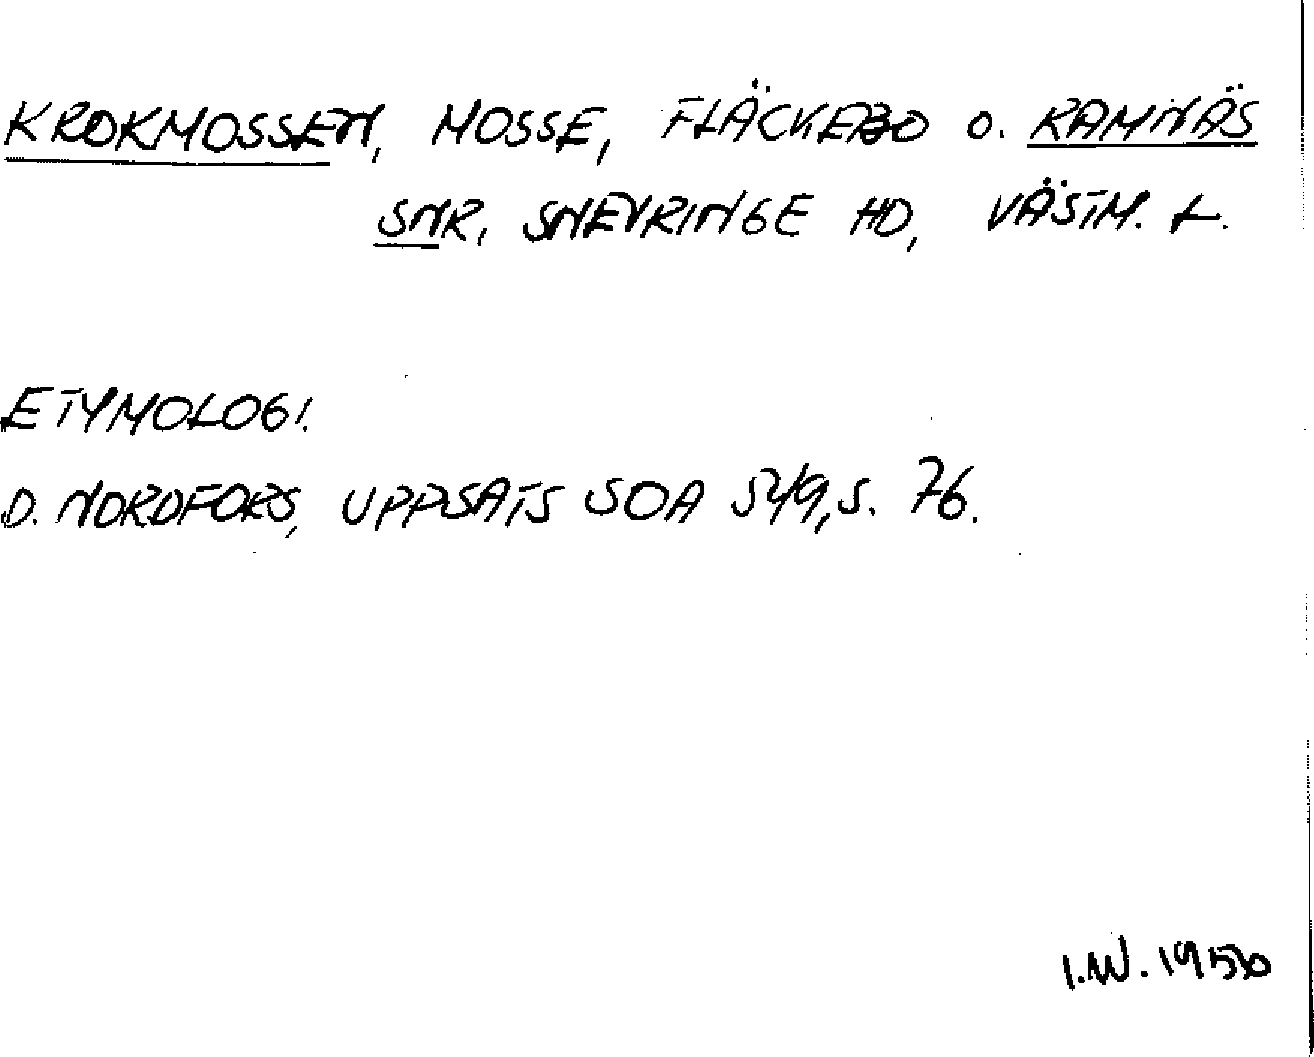 KROKMOSSEN, MOSSE, FLÄCKEBO o. RAMNÄS
SNR, SNEVRINGE HD, VÄSTM. L.
ETYMOLOGI.
D. NORDFORS, UPPSATS SOA 549, S. 76.
I.W. 1956